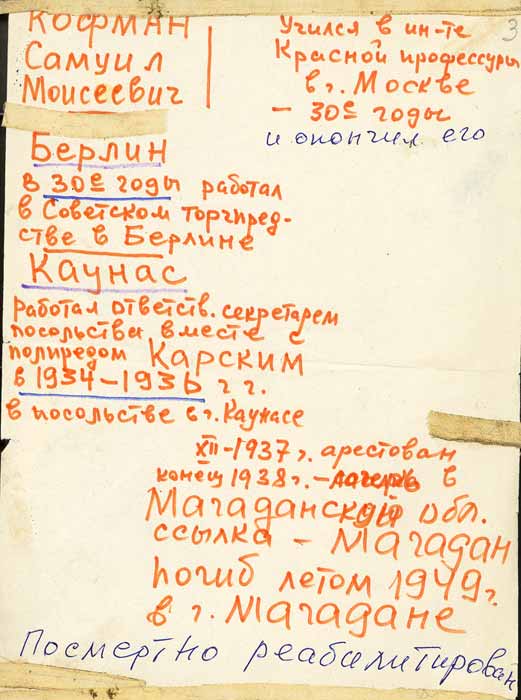 Кофман
Самуил
Моисеевич
Учился в ин-те
Красной профессуры
в г. Москве
– 30е годы
и окончил его
3
Берлин
в 30е годы работал
в Советском торгпред-
стве в Берлине
Каунас
работал ответств. секретарем
посольства вместе с
полпредом Карским
в 1934–1936 г г.
в посольстве в г. Каунасе
XII-1937 г. арестован
конец 1938 г. – лагерь в
Магаданской обл.
ссылка – Магадан
погиб летом 1949 г.
в г. Магадане
Посмертно реабилитирован